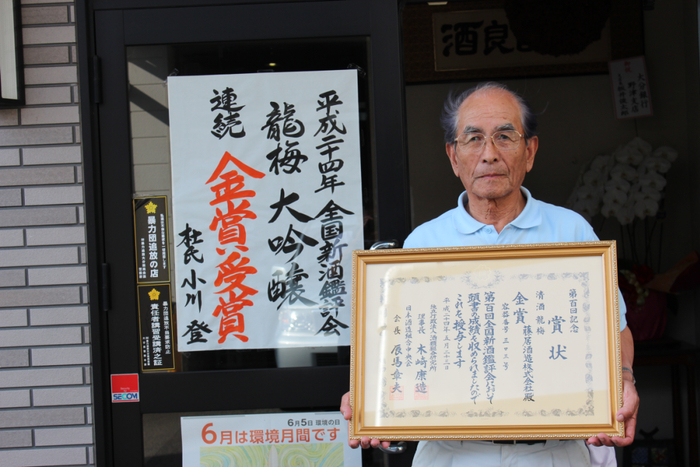 平成二十四年 全国新酒鑑評会
龍梅 大吟醸
連続
金賞受賞
杜氏 小川 登
暴力団追放の店
責任者講習受講済之証
SECOM
6月5日 環境の日
6月は環境月間です
酒良
大分銀行
野津支店
第百回記念
賞状
清酒 龍梅
金賞 藤居酒造株式会社殿
第百回全国新酒鑑評会において
頭書の成績を収められましたので
これを授与します
平成二十四年五月二十二日
独立行政法人 酒類総合研究所
理事長 木崎康造
日本酒造組合中央会
会長 辰馬章夫